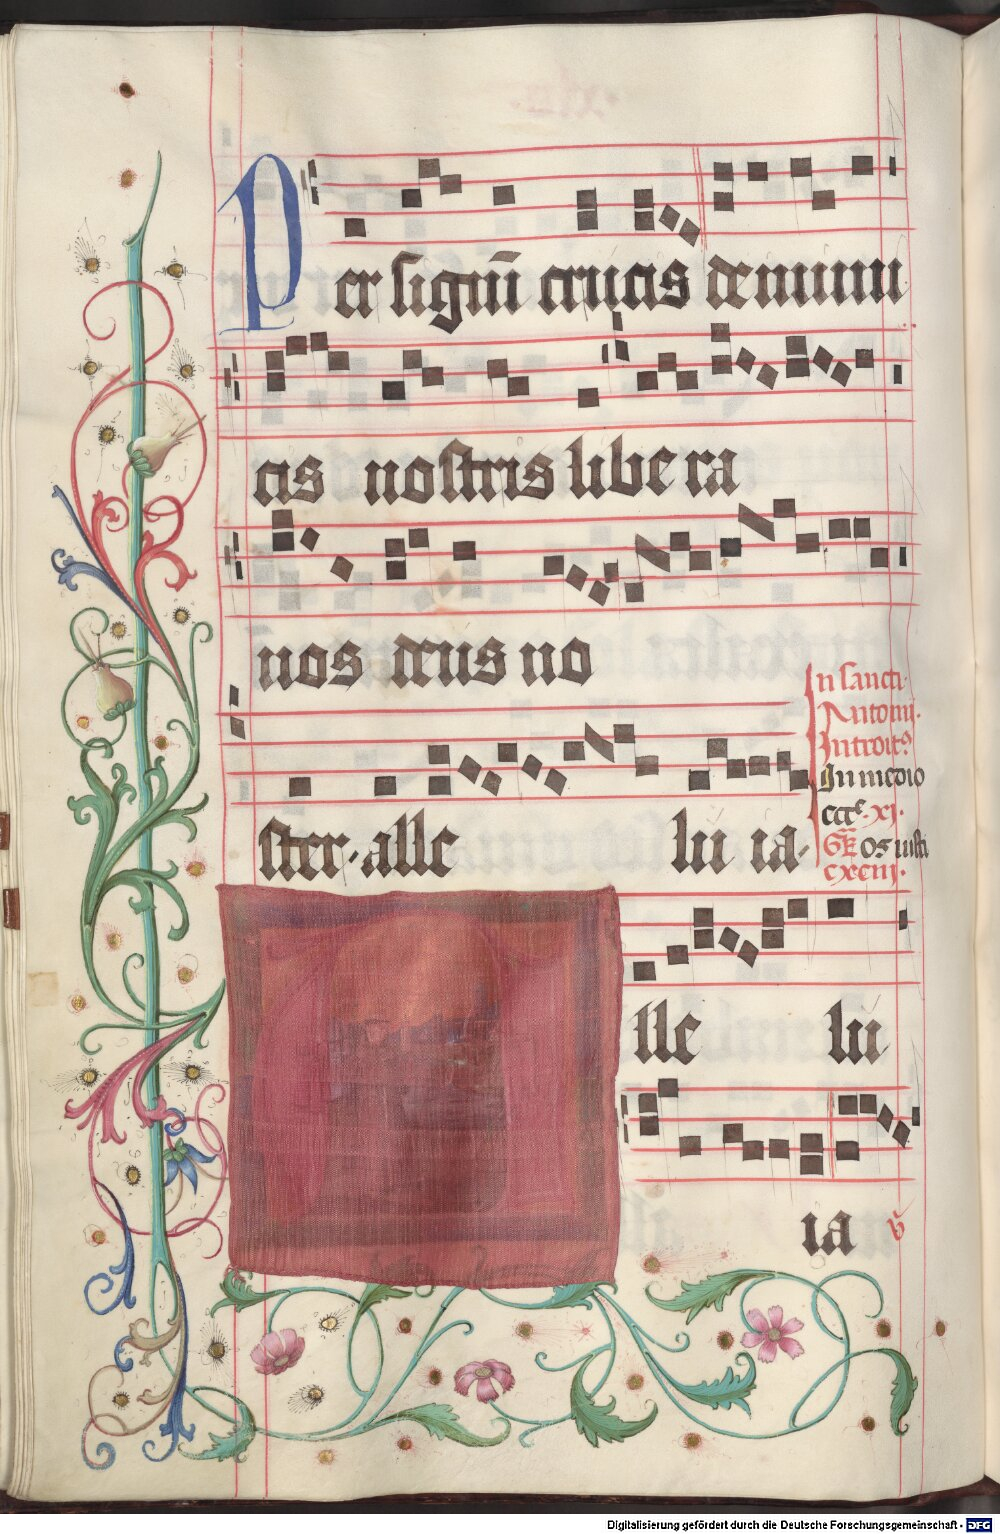 Per signū crucis de inimi
cis nostris libera
nos deus no
ster · alle lu ia ·
In sancti
Antonii ·
Introitꝰ
In medio
eccᵉ · xi ·
Gͬ Os iusti
cxciij ·
lle lu
ia ꝟ
Digitalisierung gefördert durch die Deutsche Forschungsgemeinschaft - DFG